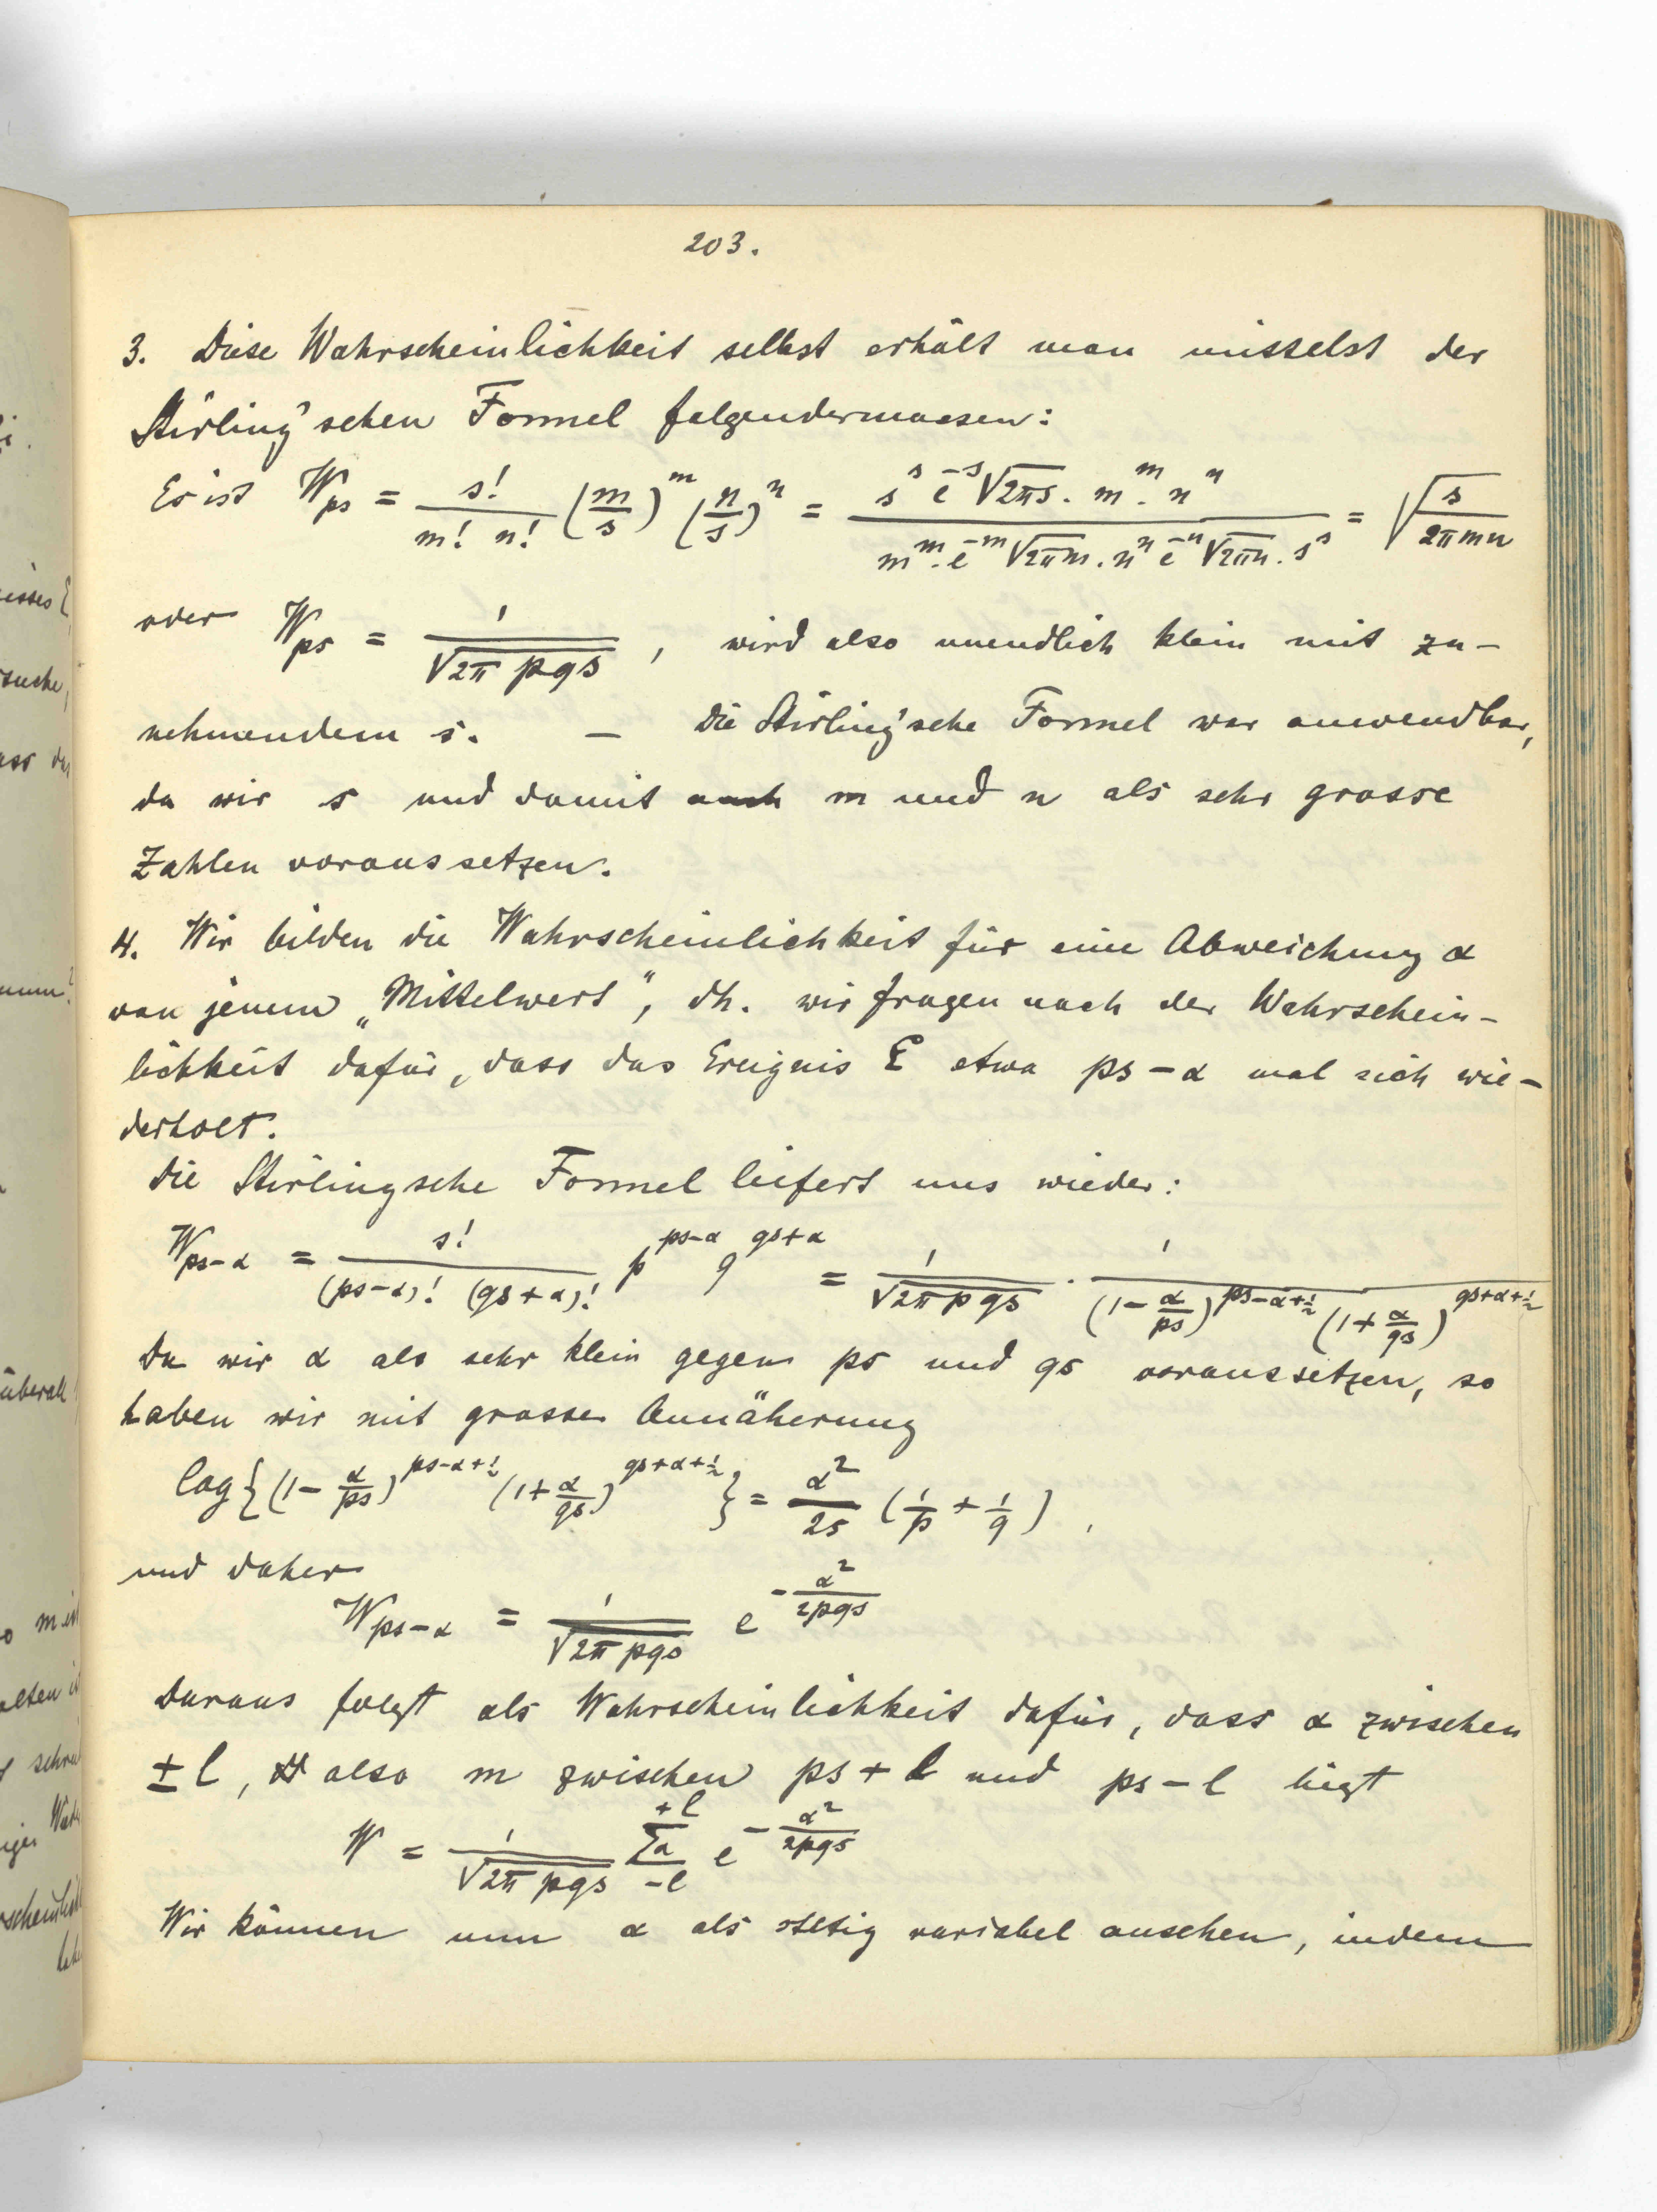 203.
3. Diese Wahrscheinlichkeit selbst erhält man mittelst der
Stirling'schen Formel folgendermassen:
Es ist W_ps = s!/(m! n!) (m/s)^m (n/s)^n = (s^s e^-s √(2πs) . m^m . n^n)/(m^m . e^-m √(2πm) . n^n e^-n √(2πn) . s^s) = √(s/(2πmn))
oder W_ps = 1/√(2π pqs) , wird also unendlich klein mit zu-
nehmendem s. — Die Stirling'sche Formel war anwendbar,
da wir s und damit auch m und n als sehr grosse
Zahlen voraussetzen.
4. Wir bilden die Wahrscheinlichkeit für eine Abweichung α
von jenem „Mittelwert", dh. wir fragen nach der Wahrschein-
lichkeit dafür, dass das Ereignis E etwa ps-α mal sich wie-
derholt.
Die Stirlingsche Formel liefert uns wieder:
W_ps-α = s!/((ps-α)! (qs+α)!) p^(ps-α) q^(qs+α) = 1/√(2π pqs) . 1/((1-α/ps)^(ps-α+½) (1+α/qs)^(qs+α+½))
Da wir α als sehr klein gegen ps und qs voraussetzen, so
haben wir mit grosser Annäherung
log{(1-α/ps)^(ps-α+½) (1+α/qs)^(qs+α+½)} = α²/2s (1/p + 1/q) ,
und daher
W_ps-α = 1/√(2π pqs) e^(-α²/2pqs)
Daraus folgt als Wahrscheinlichkeit dafür, dass α zwischen
±l, also m zwischen ps+l und ps-l liegt
W = 1/√(2π pqs) Σα_(-l)^(+l) e^(-α²/2pqs)
Wir können nun α als stetig variabel ansehen, indem